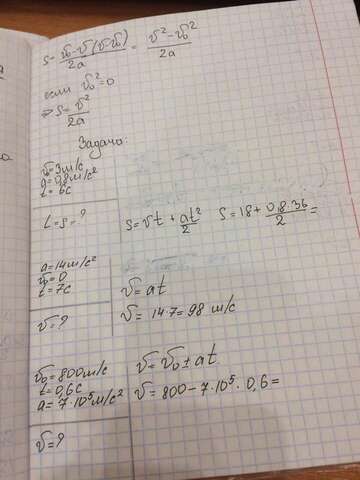 S = v₀-v(v-v₀) / 2a = v²-v₀² / 2a
если v₀²=0
⇒ S = v² / 2a
Задача:
v=3м/с
a=0,8м/с²
t=6с
L=S=?
S=vt+at²/2 S=18+0,8·36/2=
a=14м/с²
v₀=0
t=7с
v=?
v=at
v=14·7=98 м/с
v₀=800м/с
t=0,6с
a=7·10⁵м/с²
v=?
v=v₀±at
v=800-7·10⁵·0,6=